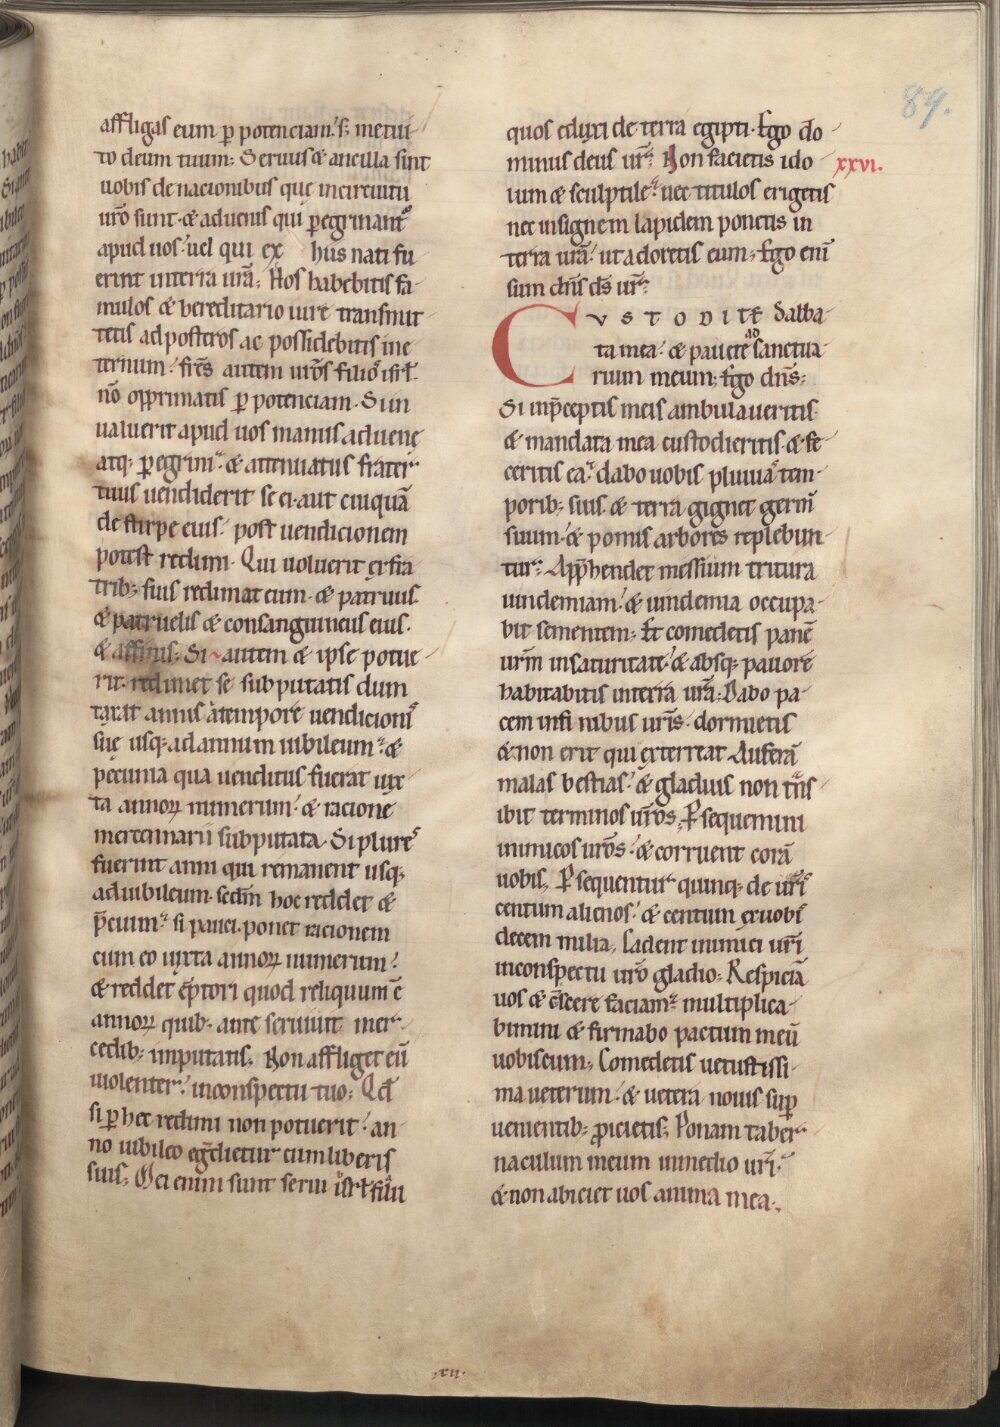 89.
affligas eum ꝑ potenciam. s; metui
to deum tuum; Seruus & ancilla sint
uobis de nacionibus que incircuitu
ur̄o sunt. & aduenis qui ꝑegrinant᷑
apud uos. uel qui ex hiis nati fu
erint interra ur̄a; Hos habebitis fa
mulos & hereditario iure transmit
tetis ad posteros ac possidebitis ine
ternum. fr̄es autem ur̄os filios isrł.
nō opprimatis ꝑ potenciam. Si in
ualuerit apud uos manus aduenę
atq; ꝑegrini. & attenuatus frater
tuus uendiderit se ei. aut cuiquā
de stirpe eius. post uendicionem
potest redimi. Qui uoluerit ex fra
trib; suis redimat eum. & patruus.
& patruelis & consanguineus eius.
& affinis; Si autem & ipse potue
rit. redimet se subputatis dum
taxat annis atempore uendicionis
suę usq; ad annum iubileum. &
pecunia qua uenditus fuerat iux
ta annoꝝ numerum. & racione
mercennarii subputata. Si plures
fuerint anni qui remanent usq;
ad iubileum. secdm̄ hoc reddet &
p̄cium. si pauci. ponet racionem
cum eo iuxta annoꝝ numerum.
& reddet ēptori quod reliquum ē
annoꝝ quib; ante seruiuit mer
cedib; imputatis. Non affliget eū
uiolenter. inconspectu tuo; Qd̄
si ꝑ hec redimi non potuerit. an
no iubileo egdietur cum liberis
suis; Mei enim sunt serui isrł filii
quos eduxi de terra egipti. Ego do
minus deus ur̄. Non facietis ido
xxvi.
lum & sculptile. nec titulos erigetis
nec insignem lapidem ponetis in
terra ur̄a. ut adoretis eum; Ego enī
sum dn̄s ds̄ ur̄.
CVSTODITE sabba
ta mea. & pauete ad sanctua
rium meum; Ego dn̄s;
Si inp̄ceptis meis ambulaueritis.
& mandata mea custodieritis. & fe
ceritis ea. dabo uobis pluuias tem
porib; suis. & terra gignet germ̄
suum. & pomis arbores replebun
tur. App̄hendet messium tritura
uindemiam. & uindemia occupa
bit sementem; Et comedetis panē
ur̄m insaturitate. & absq; pauore
habitabitis interra ur̄a; Dabo pa
cem infinibus ur̄is. dormietis
& non erit qui exterreat Auferā
malas bestias. & gladius non tn̄s
ibit terminos ur̄os. Ꝑsequemini
inimicos ur̄os. & corruent corā
uobis. Ꝑsequentur quinq; de ur̄is
centum alienos. & centum ex uobis
decem milia. Cadent inimici ur̄i
inconspectu ur̄o gladio; Respiciā
uos & c̄scere faciam. multiplica
bimini & firmabo pactum meū
uobiscum; Comedetis uetustissi
ma ueterum. & uetera nouis suꝑ
uenientib; ꝓicietis; Ponam taber
naculum meum inmedio ur̄i.
& non abiciet uos anima mea.
.xii.